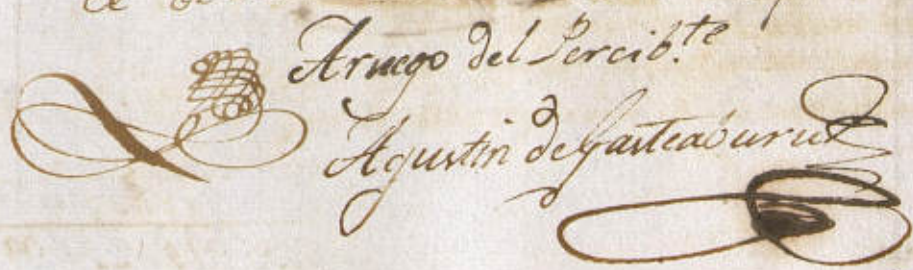 Aruego del Percib.te
Agustin de Gasteaburu